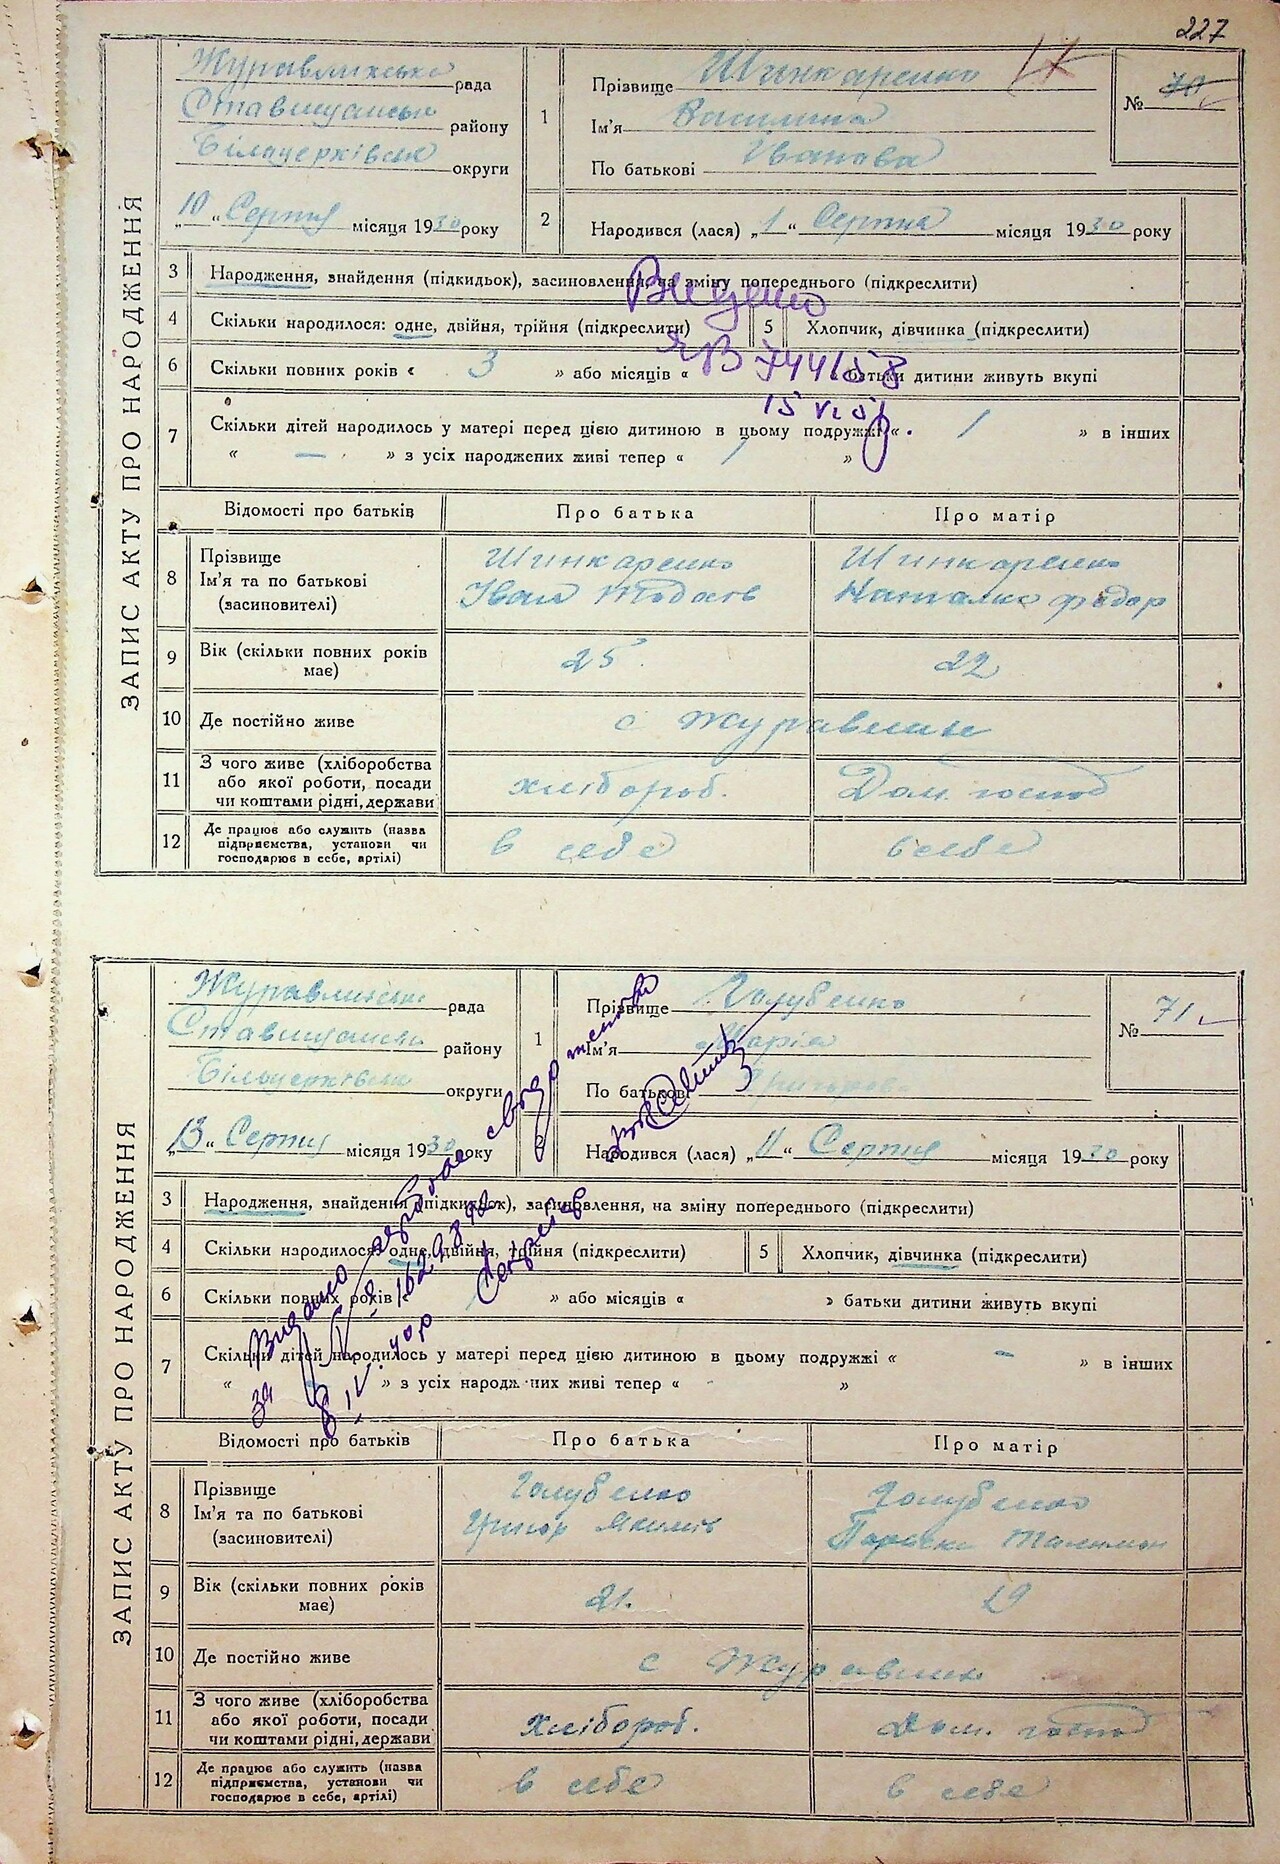 227
ЗАПИС АКТУ ПРО НАРОДЖЕННЯ
Журавлиська рада
Ставищанськ району
Білоцерківськ округи
„10“ Серпня місяця 1930 року
1 Прізвище Шинкаренко
Ім'я Василина
По батькові Іванова
№ 70
2 Народився (лася) „1“ Серпня місяця 1930 року
3 Народження, знайдення (підкидьок), засиновлення, на зміну попереднього (підкреслити)
4 Скільки народилося: одне, двійня, трійня (підкреслити) 5 Хлопчик, дівчинка (підкреслити)
6 Скільки повних років « 3 » або місяців « » батьки дитини живуть вкупі
7 Скільки дітей народилось у матері перед цією дитиною в цьому подружжі « 1 » в інших
« — » з усіх народжених живі тепер « 1 »
Відомості про батьків Про батька Про матір
8 Прізвище Шинкаренко Шинкаренко
Ім'я та по батькові Іван Наталка Федор
(засиновителі)
9 Вік (скільки повних років має) 25 22
10 Де постійно живе с Журавлиха
11 З чого живе (хліборобства або якої роботи, посади чи коштами рідні, держави хлібороб. Дом. господ
12 Де працює або служить (назва підприємства, установи чи господарює в себе, артілі) в себе в себе
ЗАПИС АКТУ ПРО НАРОДЖЕННЯ
Журавлиська рада
Ставищанськ району
Білоцерківськ округи
„13“ Серпня місяця 1930 року
1 Прізвище Голубенко
Ім'я Марія
По батькові Григорова
№ 71
2 Народився (лася) „11“ Серпня місяця 1930 року
3 Народження, знайдення (підкидьок), засиновлення, на зміну попереднього (підкреслити)
4 Скільки народилося: одне, двійня, трійня (підкреслити) 5 Хлопчик, дівчинка (підкреслити)
6 Скільки повних років « » або місяців « » батьки дитини живуть вкупі
7 Скільки дітей народилось у матері перед цією дитиною в цьому подружжі « – » в інших
« » з усіх народжених живі тепер « »
Відомості про батьків Про батька Про матір
8 Прізвище Голубенко Голубенко
Ім'я та по батькові Григор Якимів Параска
(засиновителі)
9 Вік (скільки повних років має) 21. 19
10 Де постійно живе с Журавлиха
11 З чого живе (хліборобства або якої роботи, посади чи коштами рідні, держави хлібороб. Дом. господ
12 Де працює або служить (назва підприємства, установи чи господарює в себе, артілі) в себе в себе